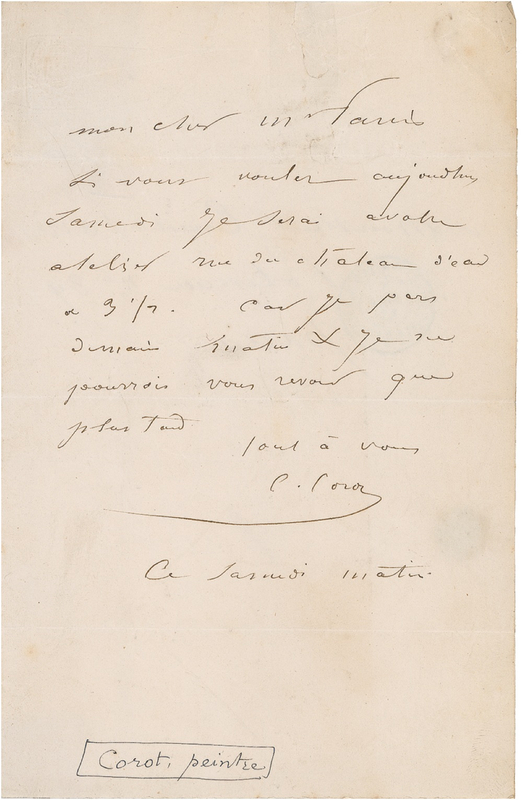 mon cher Mr Parris
Si vous voulez aujourdhuy
Samedi Je Serai a votre
atelier rue du chateau d'eau
a 3 1/2. Car Je pars
demain matin & Je ne
pourrois vous revoir que
plus tard
tout à vous
C. Corot
Ce Samedi matin.
Corot, peintre